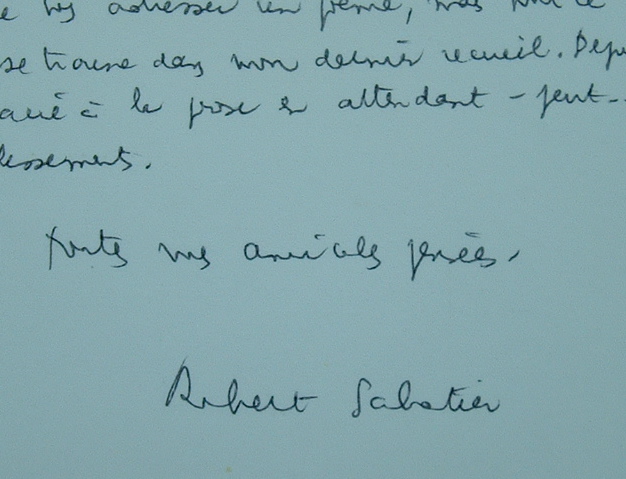 adresser un poème, mais
se trouve dans mon dernier recueil. Depu
à la prose en attendant - peut-
lessements.
toutes mes amicales pensées,
Robert Sabatier